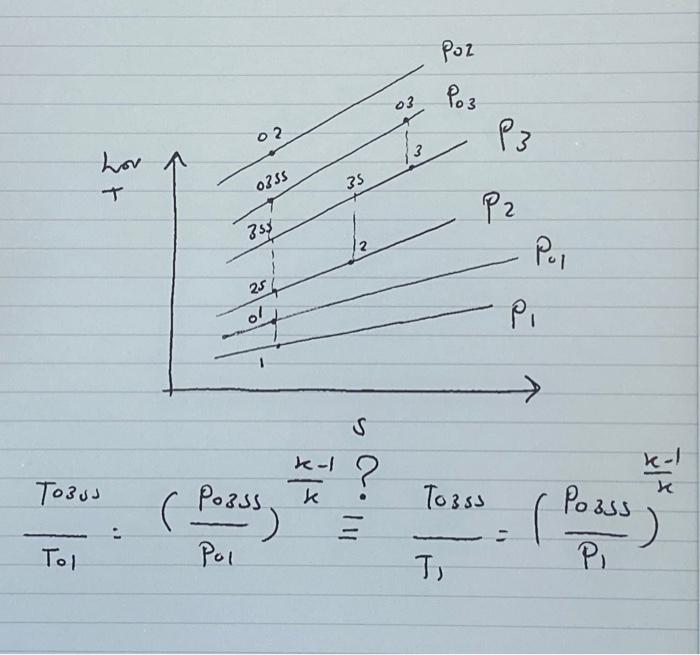 P02
03 P03
02
3 P3
h or
T
03ss 3s
P2
3ss
2
P01
2s
01
P1
1
S
T03ss / T01 = ( P03ss / P01 )^(k-1 / k) ? ≡ T03ss / T1 = ( P03ss / P1 )^(k-1 / k)